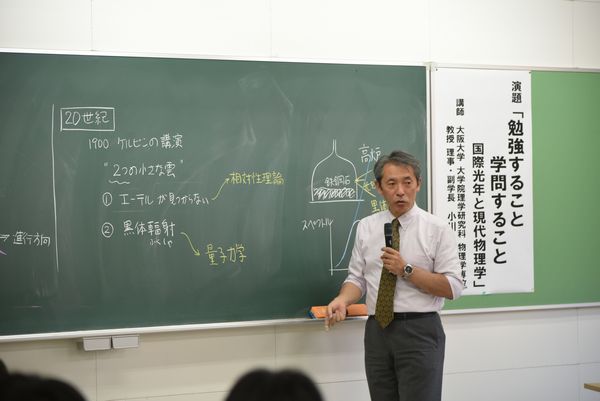 20世紀
1900 ケルビンの講演
"2つの小さな雲"
① エーテルが見つからない
相対性理論
② 黒体輻射
ふくしゃ
量子力学
→進行方向
高炉
鉄鉱石
スペクトル
演題「勉強すること
学問すること
国際光年と現代物理学」
講師 大阪大学 大学院理学研究科 物理学専攻
教授 理事・副学長 小川